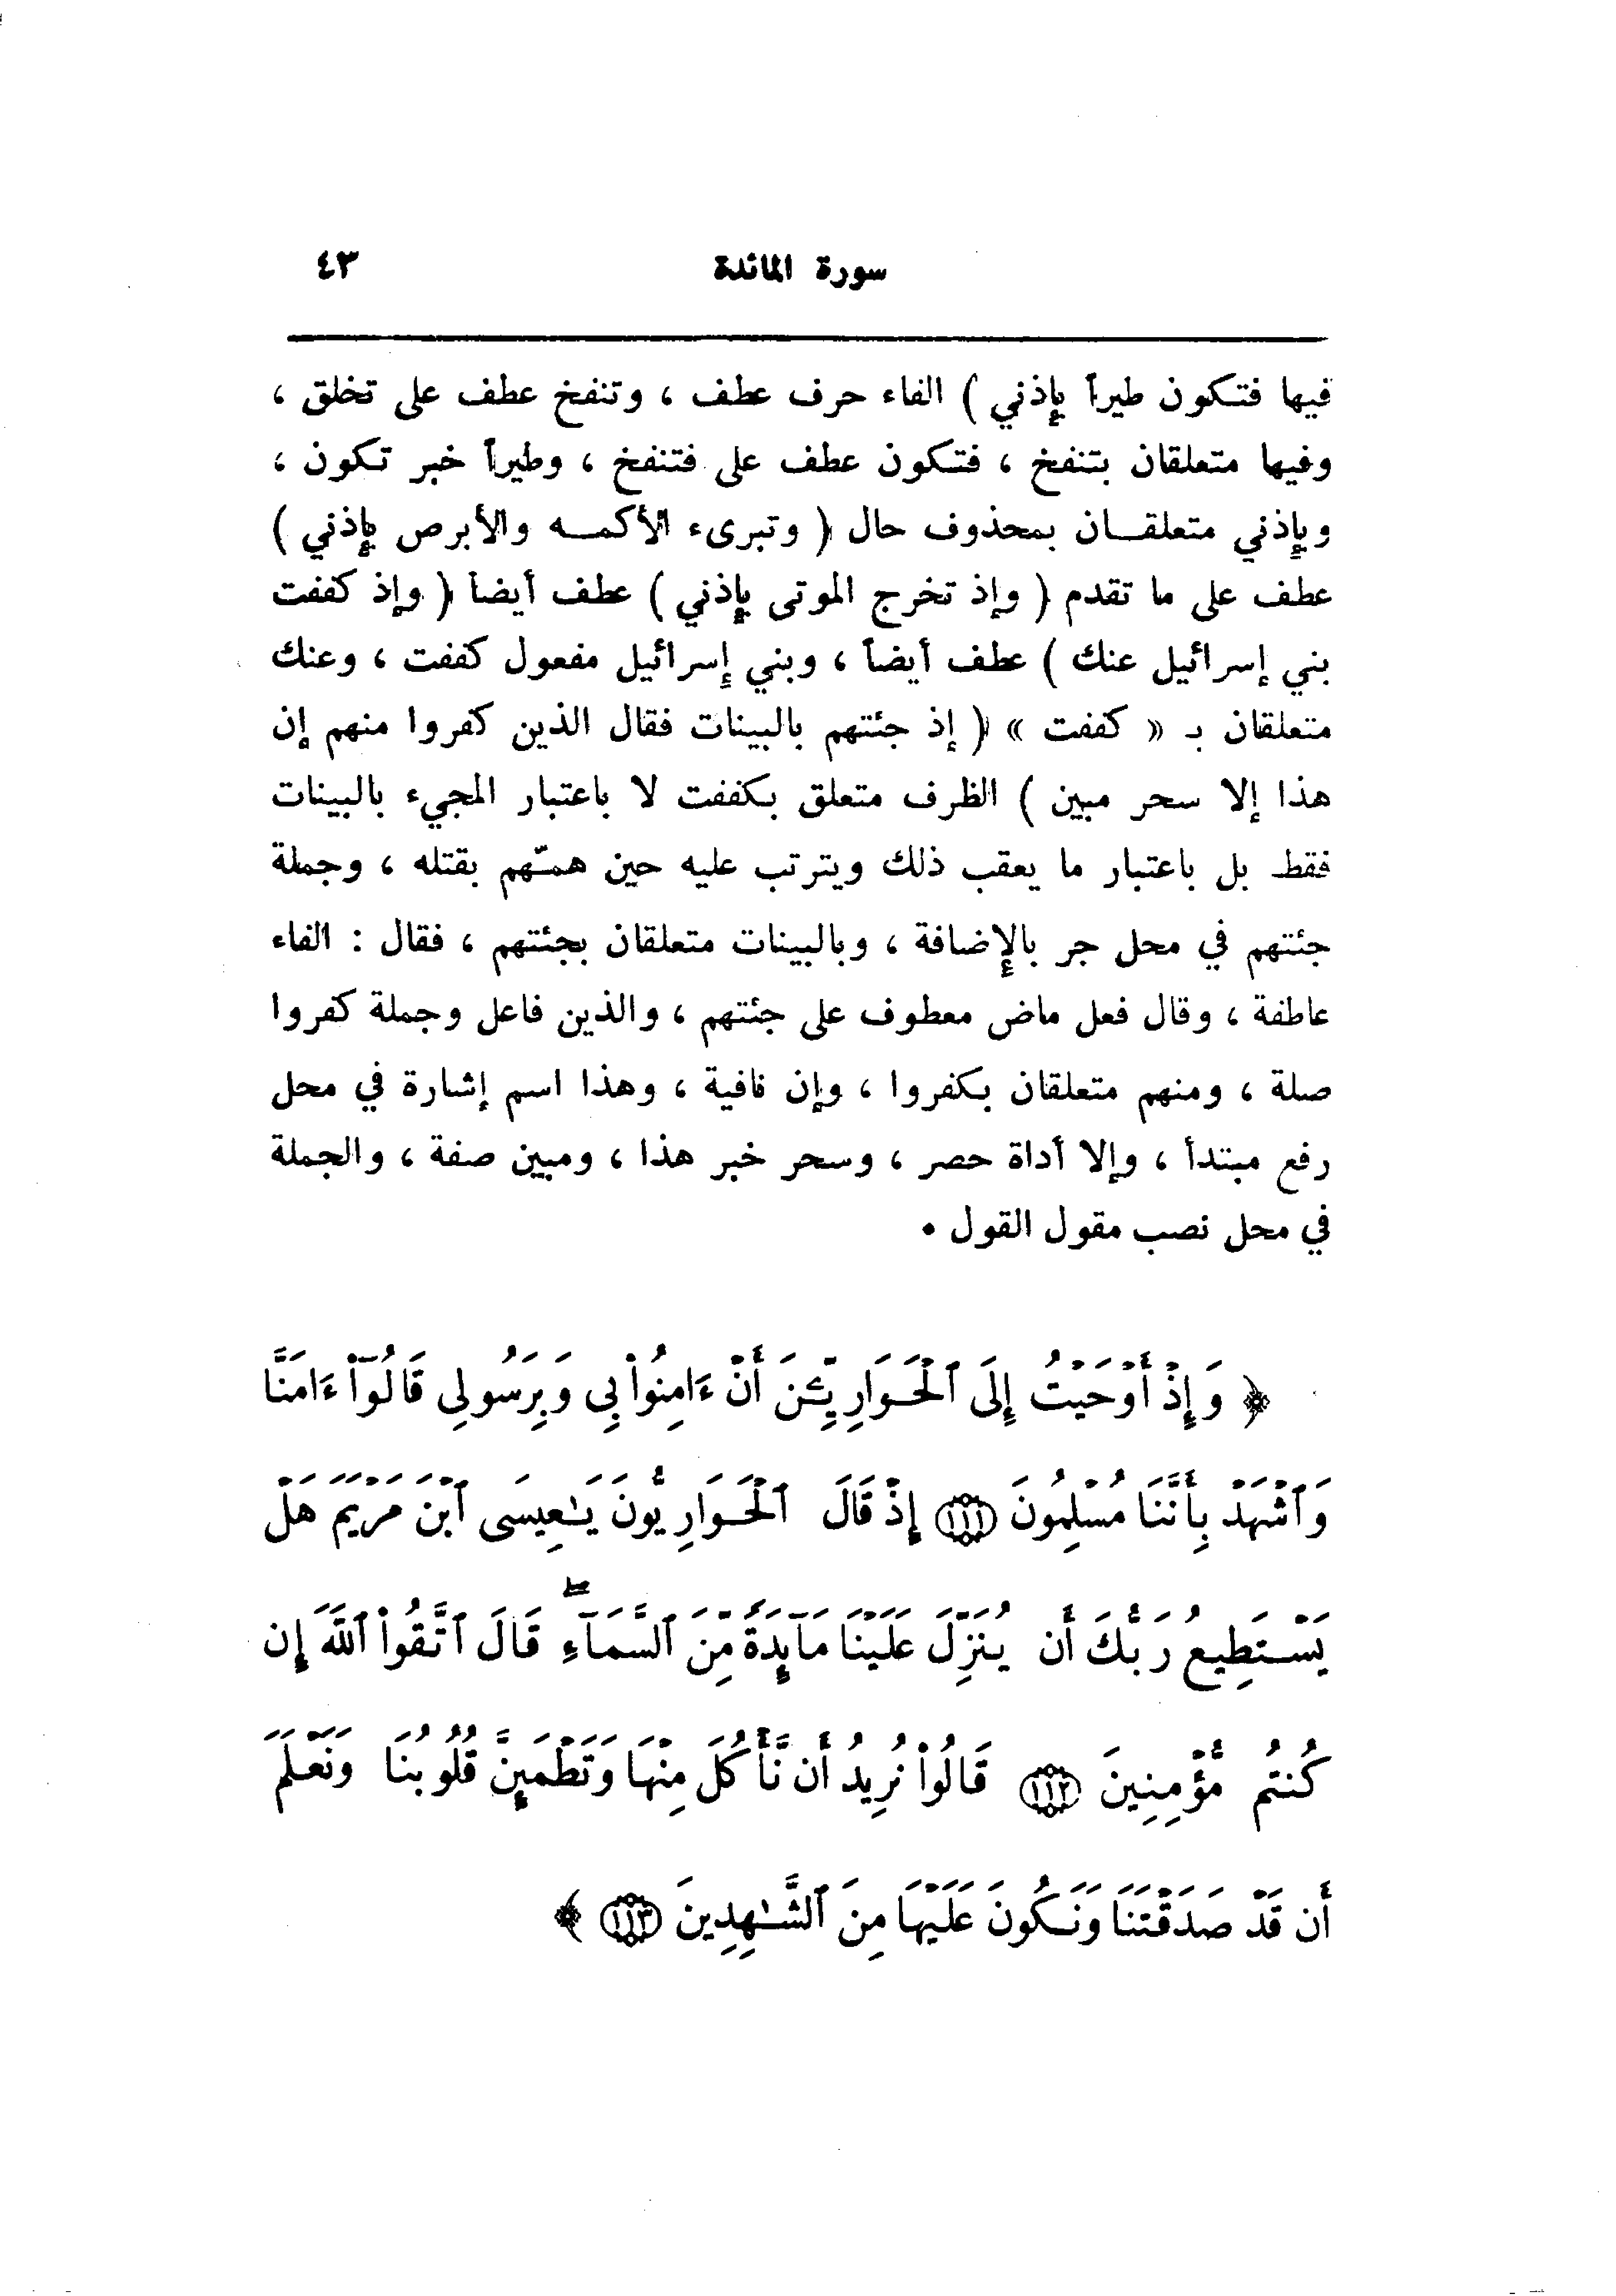 سورة المائدة ٤٣
فيها فتكون طيراً بإذني ) الفاء حرف عطف ، وتنفخ عطف على تخلق ،
وفيها متعلقان بتنفخ ، فتكون عطف على فتنفخ ، وطيراً خبر تكون ،
وبإذني متعلقان بمحذوف حال ( وتبرىء الأكمه والأبرص بإذني )
عطف على ما تقدم ( وإذ تخرج الموتى بإذني ) عطف أيضاً ( وإذ كففت
بني إسرائيل عنك ) عطف أيضاً ، وبني إسرائيل مفعول كففت ، وعنك
متعلقان بـ « كففت » ( إذ جئتهم بالبينات فقال الذين كفروا منهم إن
هذا إلا سحر مبين ) الظرف متعلق بكففت لا باعتبار المجيء بالبينات
فقط بل باعتبار ما يعقب ذلك ويترتب عليه حين همّهم بقتله ، وجملة
جئتهم في محل جر بالإضافة ، وبالبينات متعلقان بجئتهم ، فقال : الفاء
عاطفة ، وقال فعل ماض معطوف على جئتهم ، والذين فاعل وجملة كفروا
صلة ، ومنهم متعلقان بكفروا ، وإن نافية ، وهذا اسم إشارة في محل
رفع مبتدأ ، وإلا أداة حصر ، وسحر خبر هذا ، ومبين صفة ، والجملة
في محل نصب مقول القول .
﴿ وَإِذْ أَوْحَيْتُ إِلَى ٱلْحَوَارِيِّـۧنَ أَنْ ءَامِنُوا۟ بِى وَبِرَسُولِى قَالُوٓا۟ ءَامَنَّا
وَٱشْهَدْ بِأَنَّنَا مُسْلِمُونَ ١١١ إِذْ قَالَ ٱلْحَوَارِيُّونَ يَـٰعِيسَى ٱبْنَ مَرْيَمَ هَلْ
يَسْتَطِيعُ رَبُّكَ أَن يُنَزِّلَ عَلَيْنَا مَآئِدَةً مِّنَ ٱلسَّمَآءِ ۖ قَالَ ٱتَّقُوا۟ ٱللَّهَ إِن
كُنتُم مُّؤْمِنِينَ ١١٢ قَالُوا۟ نُرِيدُ أَن نَّأْكُلَ مِنْهَا وَتَطْمَئِنَّ قُلُوبُنَا وَنَعْلَمَ
أَن قَدْ صَدَقْتَنَا وَنَكُونَ عَلَيْهَا مِنَ ٱلشَّـٰهِدِينَ ١١٣ ﴾